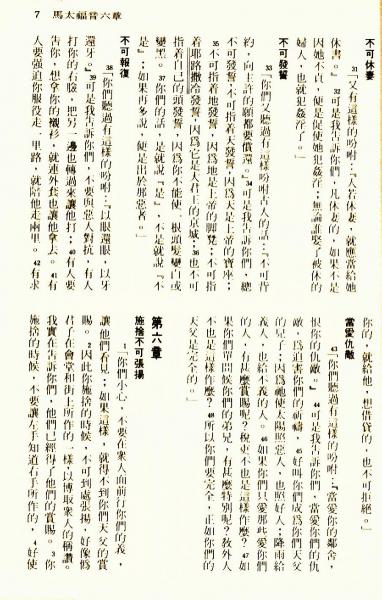 7 馬太福音六章
不可休妻
31「又有這樣的吩咐：『人若休妻，就應當給她
休書。』32可是我告訴你們，凡休妻的，如果不是
因她不貞，便是促使她犯姦淫；無論誰娶了被休的
婦人，也就犯姦淫了。
不可發誓
33「你們又聽過有這樣吩咐古人的話：『不可背
約，向主許的願都要償還。』34可是我告訴你們，總
不可發誓，不可指着天發誓，因爲天是上帝的寶座；
35不可指着地發誓，因爲地是上帝的腳凳；不可指
着耶路撒冷發誓，因爲它是大君王的京城；36也不可
指着自己的頭發誓，因爲你不能使一根頭髮變白或
變黑。37你們的話，是就說『是』，不是就說『不
是』；如果再多說，便是出於那惡者。」
不可報復
38「你們聽過有這樣的吩咐：『以眼還眼，以牙
還牙。』39可是我告訴你們，不要與惡人對抗，有人
打你的右臉，把另一邊也轉過來讓他打；40有人要
告你，想拿你的襯衫，就連外套也讓他拿去。41有
人要強迫你服役走一里路，就陪他走兩里。42有求
你的，就給他；想借貸的，也不可拒絕。」
當愛仇敵
43「你們聽過有這樣的吩咐：『當愛你的鄰舍，
恨你的仇敵。』44可是我告訴你們，當愛你們的仇
敵，爲迫害你們的祈禱，45好叫你們成爲你們天父
的兒子；因爲祂使太陽照惡人，也照好人；降雨給
義人，也給不義的人。46如果你們只愛那些愛你們
的人，有甚麼賞賜呢？稅吏不也是這樣作麼？47如
果你們單問候你們的弟兄，有甚麼特別呢？教外人
不也是這樣作麼？48所以你們要完全，正如你們的
天父是完全的。」
第六章
施捨不可張揚
1「你們小心，不要在衆人面前行你們的義，
讓他們看見；如果這樣，就得不到你們天父的賞
賜。2因此你施捨的時候，不可到處張揚，好像僞
君子在會堂和街上所作的一樣，以博取衆人的稱讚。
我實在告訴你們，他們已經得了他們的賞賜。3你
施捨的時候，不要讓左手知道右手所作的，4好使